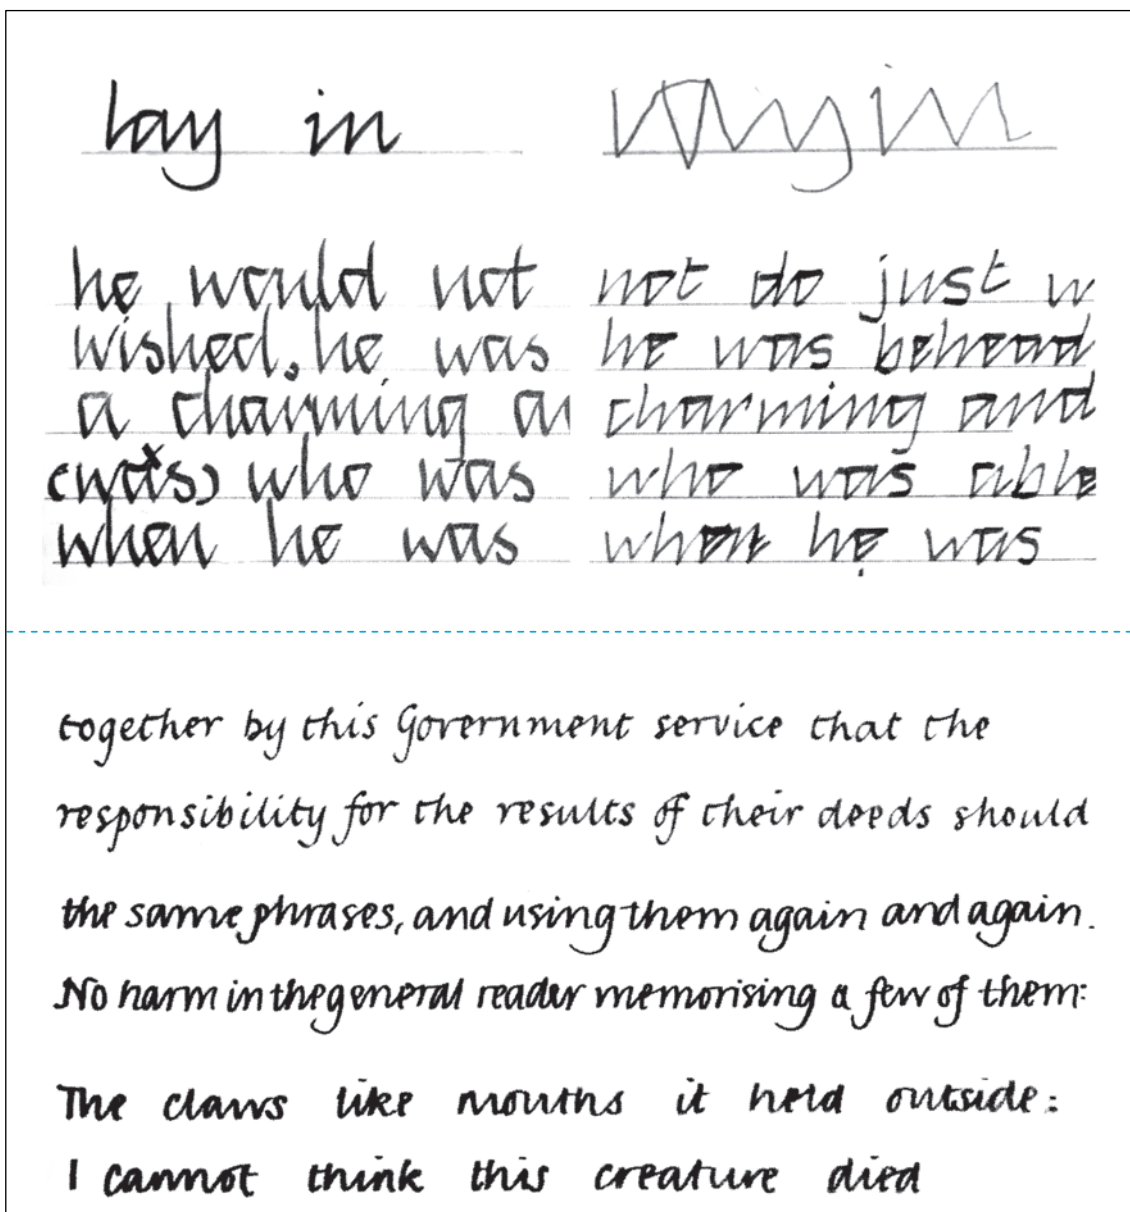 lay in
lay in
he would not
wished, he was
a charming an
(was) who was
when he was
not do just w
he was behead
charming and
who was able
when he was
together by this Government service that the
responsibility for the results of their deeds should
the same phrases, and using them again and again.
No harm in the general reader memorising a few of them:
The claws like mouths it held outside:
I cannot think this creature died